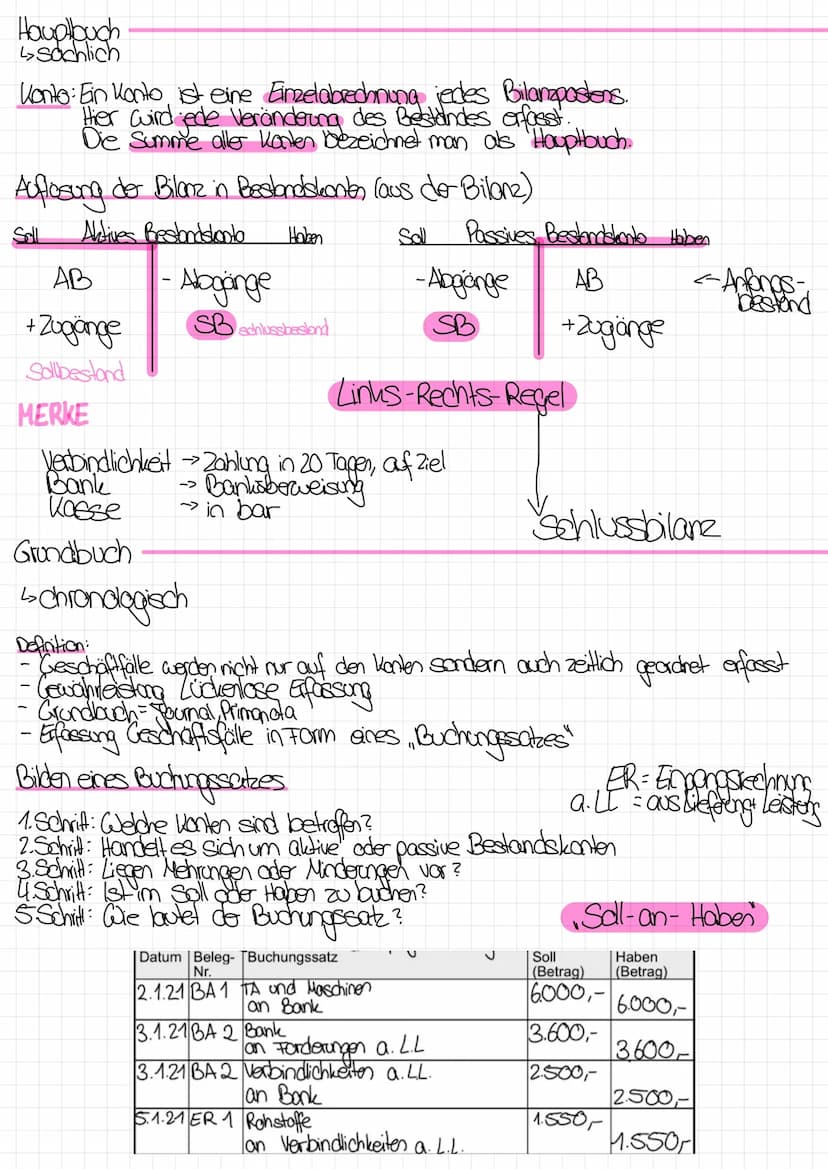 Hauptbuch
↳ sachlich
Konto: Ein Konto ist eine Einzelabrechnung jedes Bilanzpostens.
Hier wird jede Veränderung des Bestandes erfasst.
Die Summe aller Konten bezeichnet man als Hauptbuch.
Auflösung der Bilanz in Bestandskonten (aus der Bilanz)
Soll Aktives Bestandskonto Haben
AB - Abgänge
+ Zugänge SB schlussbestand
Sollbestand
Soll Passives Bestandskonto Haben
- Abgänge AB ← Anfangs-
bestand
SB + Zugänge
Links-Rechts-Regel
MERKE
Verbindlichkeit → Zahlung in 20 Tagen, auf Ziel
Bank → Banküberweisung
Kasse → in bar
Schlussbilanz
Grundbuch
↳ chronologisch
Definition:
- Geschäftfälle werden nicht nur auf den Konten sondern auch zeitlich geordnet erfasst
- Gewährleistung Lückenlose Erfassung
- Grundbuch = Journal, Primanota
- Erfassung Geschäftsfälle in Form eines „Buchungssatzes"
Bilden eines Buchungssatzes
ER = Eingangsrechnung
a.LL = aus Lieferung + Leistung
1. Schritt: Welche Konten sind betroffen?
2. Schritt: Handelt es sich um aktive oder passive Bestandskonten
3. Schritt: Liegen Mehrungen oder Minderungen vor?
4. Schritt: Ist im Soll oder Haben zu buchen?
5 Schritt: Wie lautet der Buchungssatz?
„Soll-an-Haben"
Datum Beleg-Nr. Buchungssatz Soll (Betrag) Haben (Betrag)
2.1.21 BA 1 TA und Maschinen 6.000,-
an Bank 6.000,-
3.1.21 BA 2 Bank 3.600,-
an Forderungen a.LL 3.600,-
3.1.21 BA 2 Verbindlichkeiten a.LL. 2.500,-
an Bank 2.500,-
5.1.21 ER 1 Rohstoffe 1.550,-
an Verbindlichkeiten a.L.L. 1.550,-